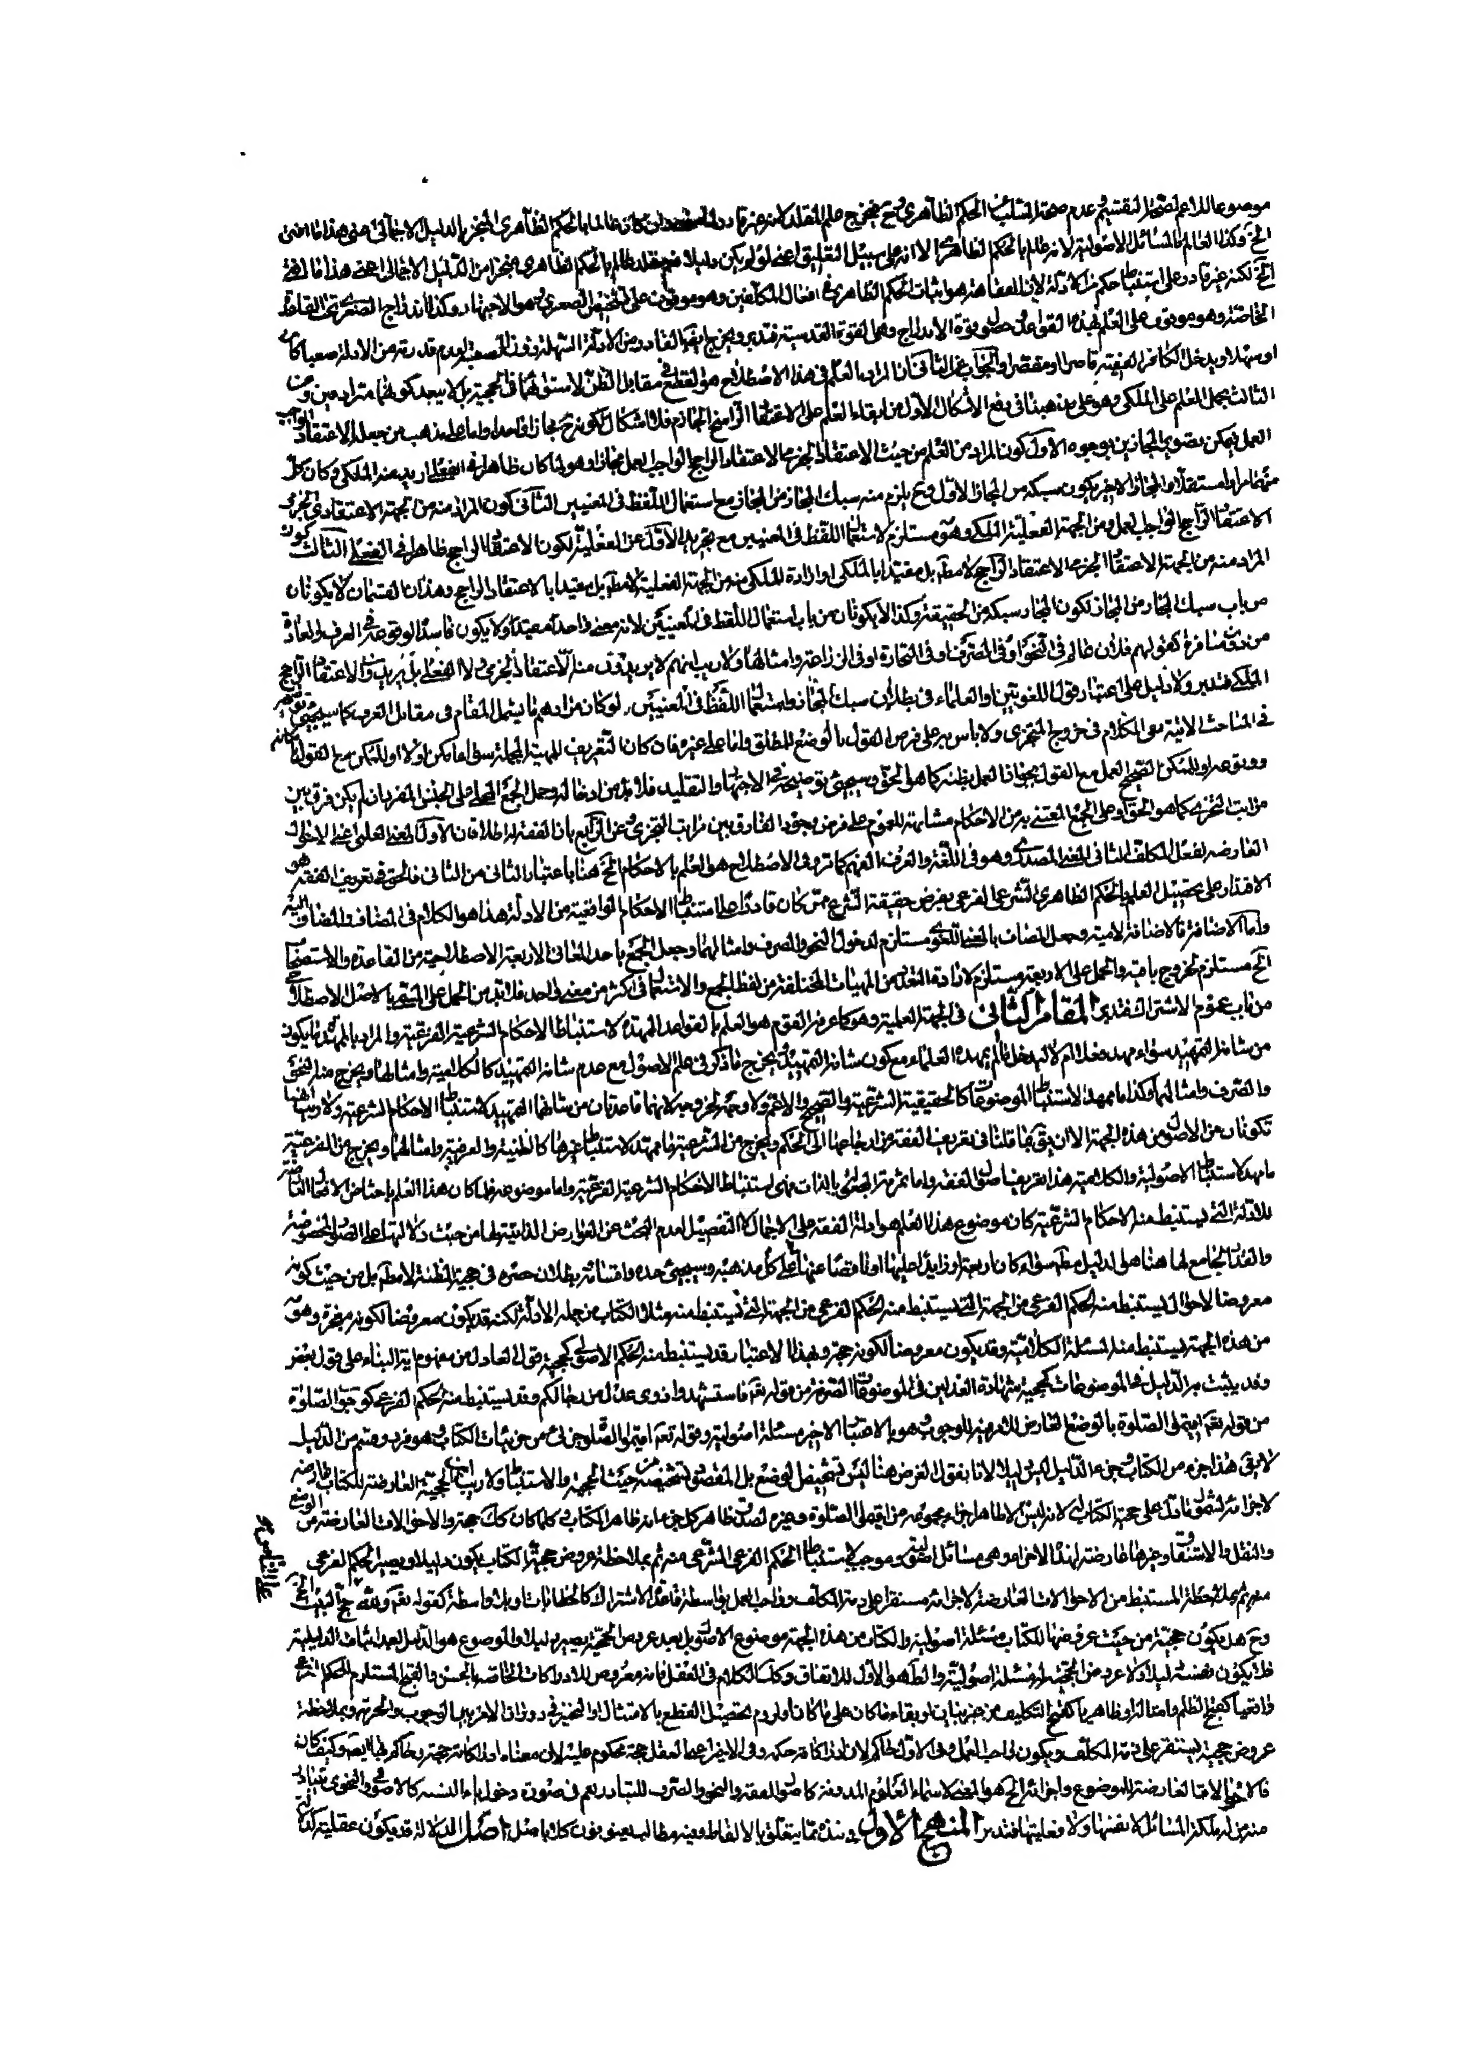 موضوعا للاعم لصحة التقسيم وعدم صحة السلب عن الحكم الظاهري وح يخرج علم المقلد لانه غير قادر وان كان عالما بالحكم الظاهري المنجز بالدليل الاجمالي
الخ وكذا العالم بالمسائل الاصولية لانه عالم بالحكم الظاهري الا انه على سبيل التعليق اعنى لو لم يكن دليلا عالم بالحكم الظاهري منجز من الدليل الاجمالي اعنى هذا ما افتى
الخ لكنه غير قادر على استنباط حكم من الادلة لان الفقاهة هو اثبات الحكم الظاهري في افعال المكلفين وهو موقوف على تشخيص الصغرى وهو الاجتهاد وكذا اندراج الصغرى تحت القاعدة
الخاصة وهو موقوف على العلم بهذه القواعد وحصول قوة الاندراج وهى القوة القدسية فتدبر ويخرج ايضا القادر من الادلة السهلة دون الصعبة لعدم قدرته من الادلة صعبا كان
او سهلا ويدخل الكافر الفقيه قاصرا او مقصرا والجواب عن الثاني ان المراد بالعلم في هذا الاصطلاح هو القطع في مقابل الظن لاستوائهما في الحجية بل لا يبعد كونهما مترادفين ومن
الثالث بحمل العلم على الملكى وهو على مذهبنا في دفع الاشكال الاول من ابقاء العلم على الاعتقاد الراسخ الجازم فلا اشكال لكونه ح مجازا واحدا واما على مذهب من جعله الاعتقاد الواجب
العمل فيمكن تصوير المجازين بوجوه الاول كون المراد من العلم من حيث الاعتقاد الجزمى الاعتقاد الراجح الواجب العمل مجازا وهو لما كان ظاهرا في الفعلى اريد منه الملكى وكان كل
منهما مرادا مستقلا والمجاز الاخير يكون سبكه من المجاز الاول وح يلزم منه سبك المجاز من المجاز مع استعمال اللفظ في المعنيين الثاني كون المراد منه من الجهة الاعتقادى الجزمى
الاعتقاد الراجح الواجب العمل ومن الجهة الفعلية الملكى وهو مستلزم لاستعمال اللفظ في المعنيين مع تجريد الاول عن الفعلية لكون الاعتقاد الراجح ظاهرا في الفعلى الثالث كون
المراد منه من الجهة الاعتقاد الجزمى الاعتقاد الراجح لا مطلقا بل مقيدا بالملكى او ارادة الملكى منه من الجهة الفعلية لا مطلقا بل مقيدا بالاعتقاد الراجح وهذان القسمان لا يكونان
من باب سبك المجاز من المجاز لكون المجاز سبكه من الحقيقة وكذا لا يكونان من باب استعمال اللفظ في المعنيين لانه معنى واحدا مقيدا ولا يكون فاسدا لوقوعه في العرف والعادة
من دون منافرة كقولهم فلان عالم في النحو او في الصرف او في التجارة او في الزراعة وامثالها ولا ريب انهم لا يريدون منه الاعتقاد الجزمى ولا الفعلى بل يريدون الاعتقاد الراجح
الملكى فتدبر ولا دليل على اعتبار قول اللغويين او العلماء في بطلان سبك المجاز واستعمال اللفظ في المعنيين لو كان مرادهم ما يشمل المقام في مقابل العرف كما سيجئ توضيحه
في المباحث الاتية بقى الكلام في خروج المتجزى ولا باس به على فرض القول بالوضع للمطلق واما على غيره فان كان التعريف للمهية المجملة سواء امكن او لا او للممكن مع القول امكانه
ووقوعه او للممكن الصحيح العمل مع القول بجواز العمل بظنه كما هو الحق وسيجئ توضيحه في الاجتهاد والتقليد فلا بد من ادخاله وحمل الجمع المحلى على الجنس الفرد ان لم يكن فرق بين
مراتب التجزى كما هو الحق او على الجمع المعتد به من الاحكام مشابهة للعموم على فرض وجود الفارق بين مراتب التجزى وعن الرابع بان الفقه له اطلاقان الاول المعنى العلمى اعنى الاحوال
العارضة لفعل المكلف الثانى المعنى المصدرى وهو في اللغة والعرف الفهم كما مر وفي الاصطلاح هو العلم بالاحكام الخ هنا باعتبار الثانى من الثانى فالحق في تعريف الفقه هو
الاقتدار على تحصيل العلم بالحكم الظاهرى الشرعى الفرعى بفرض حقيقة الشرع ممن كان قادرا على استنباط الاحكام الواقعية من الادلة هذا هو الكلام في المضاف والمضاف اليه
واما الاضافة فالاضافة لامية وجعل المضاف بالمعنى اللغوى مستلزم لدخول النحو والصرف وامثالهما وجعل الجمع باحد المعانى الاربعة الاصطلاحية من القاعدة والاستصحاب
الخ مستلزم لخروج باقيه والحمل على الاربعة مستلزم لارادة القدر من المهيات المختلفة من لفظ الجمع والاستعمال في اكثر من معنى واحد فلا بد من الحمل على المسمى بالاصل الاصطلاحى
من باب عموم الاشتراك فتدبر المقام الثانى في الجهة العلمية وهو كما عرفه القوم هو العلم بالقواعد الممهدة لاستنباط الاحكام الشرعية الفرعية والمراد بالممهدة ما يكون
من شانه التمهيد سواء مهد فعلا ام لا ليدخل ما لم يمهده العلماء مع كون شانه التمهيد ويخرج ما ذكر في علم الاصول مع عدم شانه التمهيد كالكلامية وامثالها ويخرج منه النحو
والصرف وامثالهما وكذا ما مهد لاستنباط الموضوعات كالحقيقة الشرعية والصحيح والاعم ولا وجه لخروجه لانهما قاعدتان من شانهما التمهيد لاستنباط الاحكام الشرعية ولا ريب انهما
تكونان من الاصول من هذه الجهة الا ان يق كما قلنا في تعريف الفقه من ارجاعها الى الحكم ويخرج من الشرعية ما مهد لاستنباط غيرها كالطبية والعرفية وامثالها ويخرج من الفرعية
ما مهد لاستنباط الاصولية والكلامية هذا تعريف اصول الفقه واما ثمرته المجملة بالذات فهى استنباط الاحكام الشرعية الفرعية واما موضوعه فلما كان هذا العلم باحثا من الاحوال العارضة
للادلة التى يستنبط منه الاحكام الشرعية كان موضوع هذا العلم هو ادلة الفقه على الاجمال لا التفصيل لعدم البحث عن العوارض الذاتية لها من حيث دلالتها على الصور المخصوصة
والقدر الجامع لها هنا هو الدليل مطلقا سواء كان اربعة او زايدا عليها او ناقصا عنها على كل مذهبه وسيجئ حده واقسامه بطلان حصره في حجية المظنة لا مطلقا بل من حيث كونه
معروضا لاحوال يستنبط منه الحكم الفرعى من الجهة التى يستنبط منه مثلا الكتاب من جملة الادلة لكنه قد يكون معروضا لكونه معجزة وهو
من هذه الجهة يستنبط منه المسئلة الكلامية وقد يكون معروضا لكونه حجة وبهذا الاعتبار قد يستنبط منه الحكم الاصولى كحجية قول العادل من مفهوم اية النبا على قول بعض
وقد يثبت به الدليل في الموضوعات كحجية شهادة العدلين في الموضوعات الصرفة من قوله تعه فاستشهدوا ذوى عدل من رجالكم وقد يستنبط منه الحكم الفرعى كوجوب الصلوة
من قوله تعه اقيموا الصلوة بالوضع العارض للامر للوجوب وهو بالاعتبار الاخير مسئلة اصولية وقوله تعه اقيموا الصلوة جزئى من جزئيات الكتاب وهو فرد وقسم من الدليل
لا يق هذا جزء من الكتاب وجزء الدليل ليس دليلا لانا نقول الغرض هنا ليس تحصيل الوضع بل المقصود تشخيصه من حيث الحجية والاستنباط ولا ريب ان الحجية العارضة للكتاب عارضة
لاجزائه لشمول ما دل على حجية الكتاب له لانه ليس الا ظاهر اجزاء مجموعه من اقيموا الصلوة وغيره لصدق ظاهر كل جزء انه ظاهر الكتاب فكلما كان كك حجة والاحوالات العارضة من الوضع
والنقل والاشتقاق وغيرها عارضة لهذا الاجزاء وهى مسائل الاصولية وموجب لاستنباط الحكم الفرعى الشرعى منه ثم بملاحظة عروض حجية الكتاب يكون دليلا ويصير الحكم الفرعى
على القاصرين
منه ثم بملاحظة المستنبط من الاحوالات العارضة لاجزائه مستقرا على ذمة المكلف وواجب العمل بواسطة قاعدة الاشتراك كالخطابات او بلا واسطة كقوله تعه ولله حج البيت الخ
وح هل يكون حجيته من حيث عروضها للكتاب مسئلة اصولية والكتاب من هذه الجهة موضوع الاصول بل بعد عروض الحجية يصير دليلا والموضوع هو الدليل بعد اثبات الدليلية
فلا يكون بنفسه دليلا ولا عروض الحجية له مسئلة اصولية والظ هو الاول للاتفاق وكك الكلام في العقل فانه معروض للادراكات الخاصة بالحسن والقبح المستلزم الحكم الشرعى
واقعيا كقبح الظلم وامثاله او ظاهريا كقبح التكليف من غير بيان او بقاء ما كان على ما كان او لزوم تحصيل القطع بالامتثال او التخيير في دوران الامر بين الوجوب والحرمة وبملاحظة
عروض حجيته يستقر على ذمة المكلف ويكون واجب العمل
فالاحوالات العارضة للموضوع واجزائه الخ هو المعنى لاسماء العلوم المدونة كاصول الفقه والنحو والصرف للتبادر نعم في صورة دخول ياء النسبة كالاصولى والنحوى يتبادر
منه من له ملكة المسائل لا نفسها ولا فعليتها فتدبر المنهج الاول في نبذة مما يتعلق بالالفاظ وفيه مطالب اصل الدلالة قد يكون عقلية كدلالة